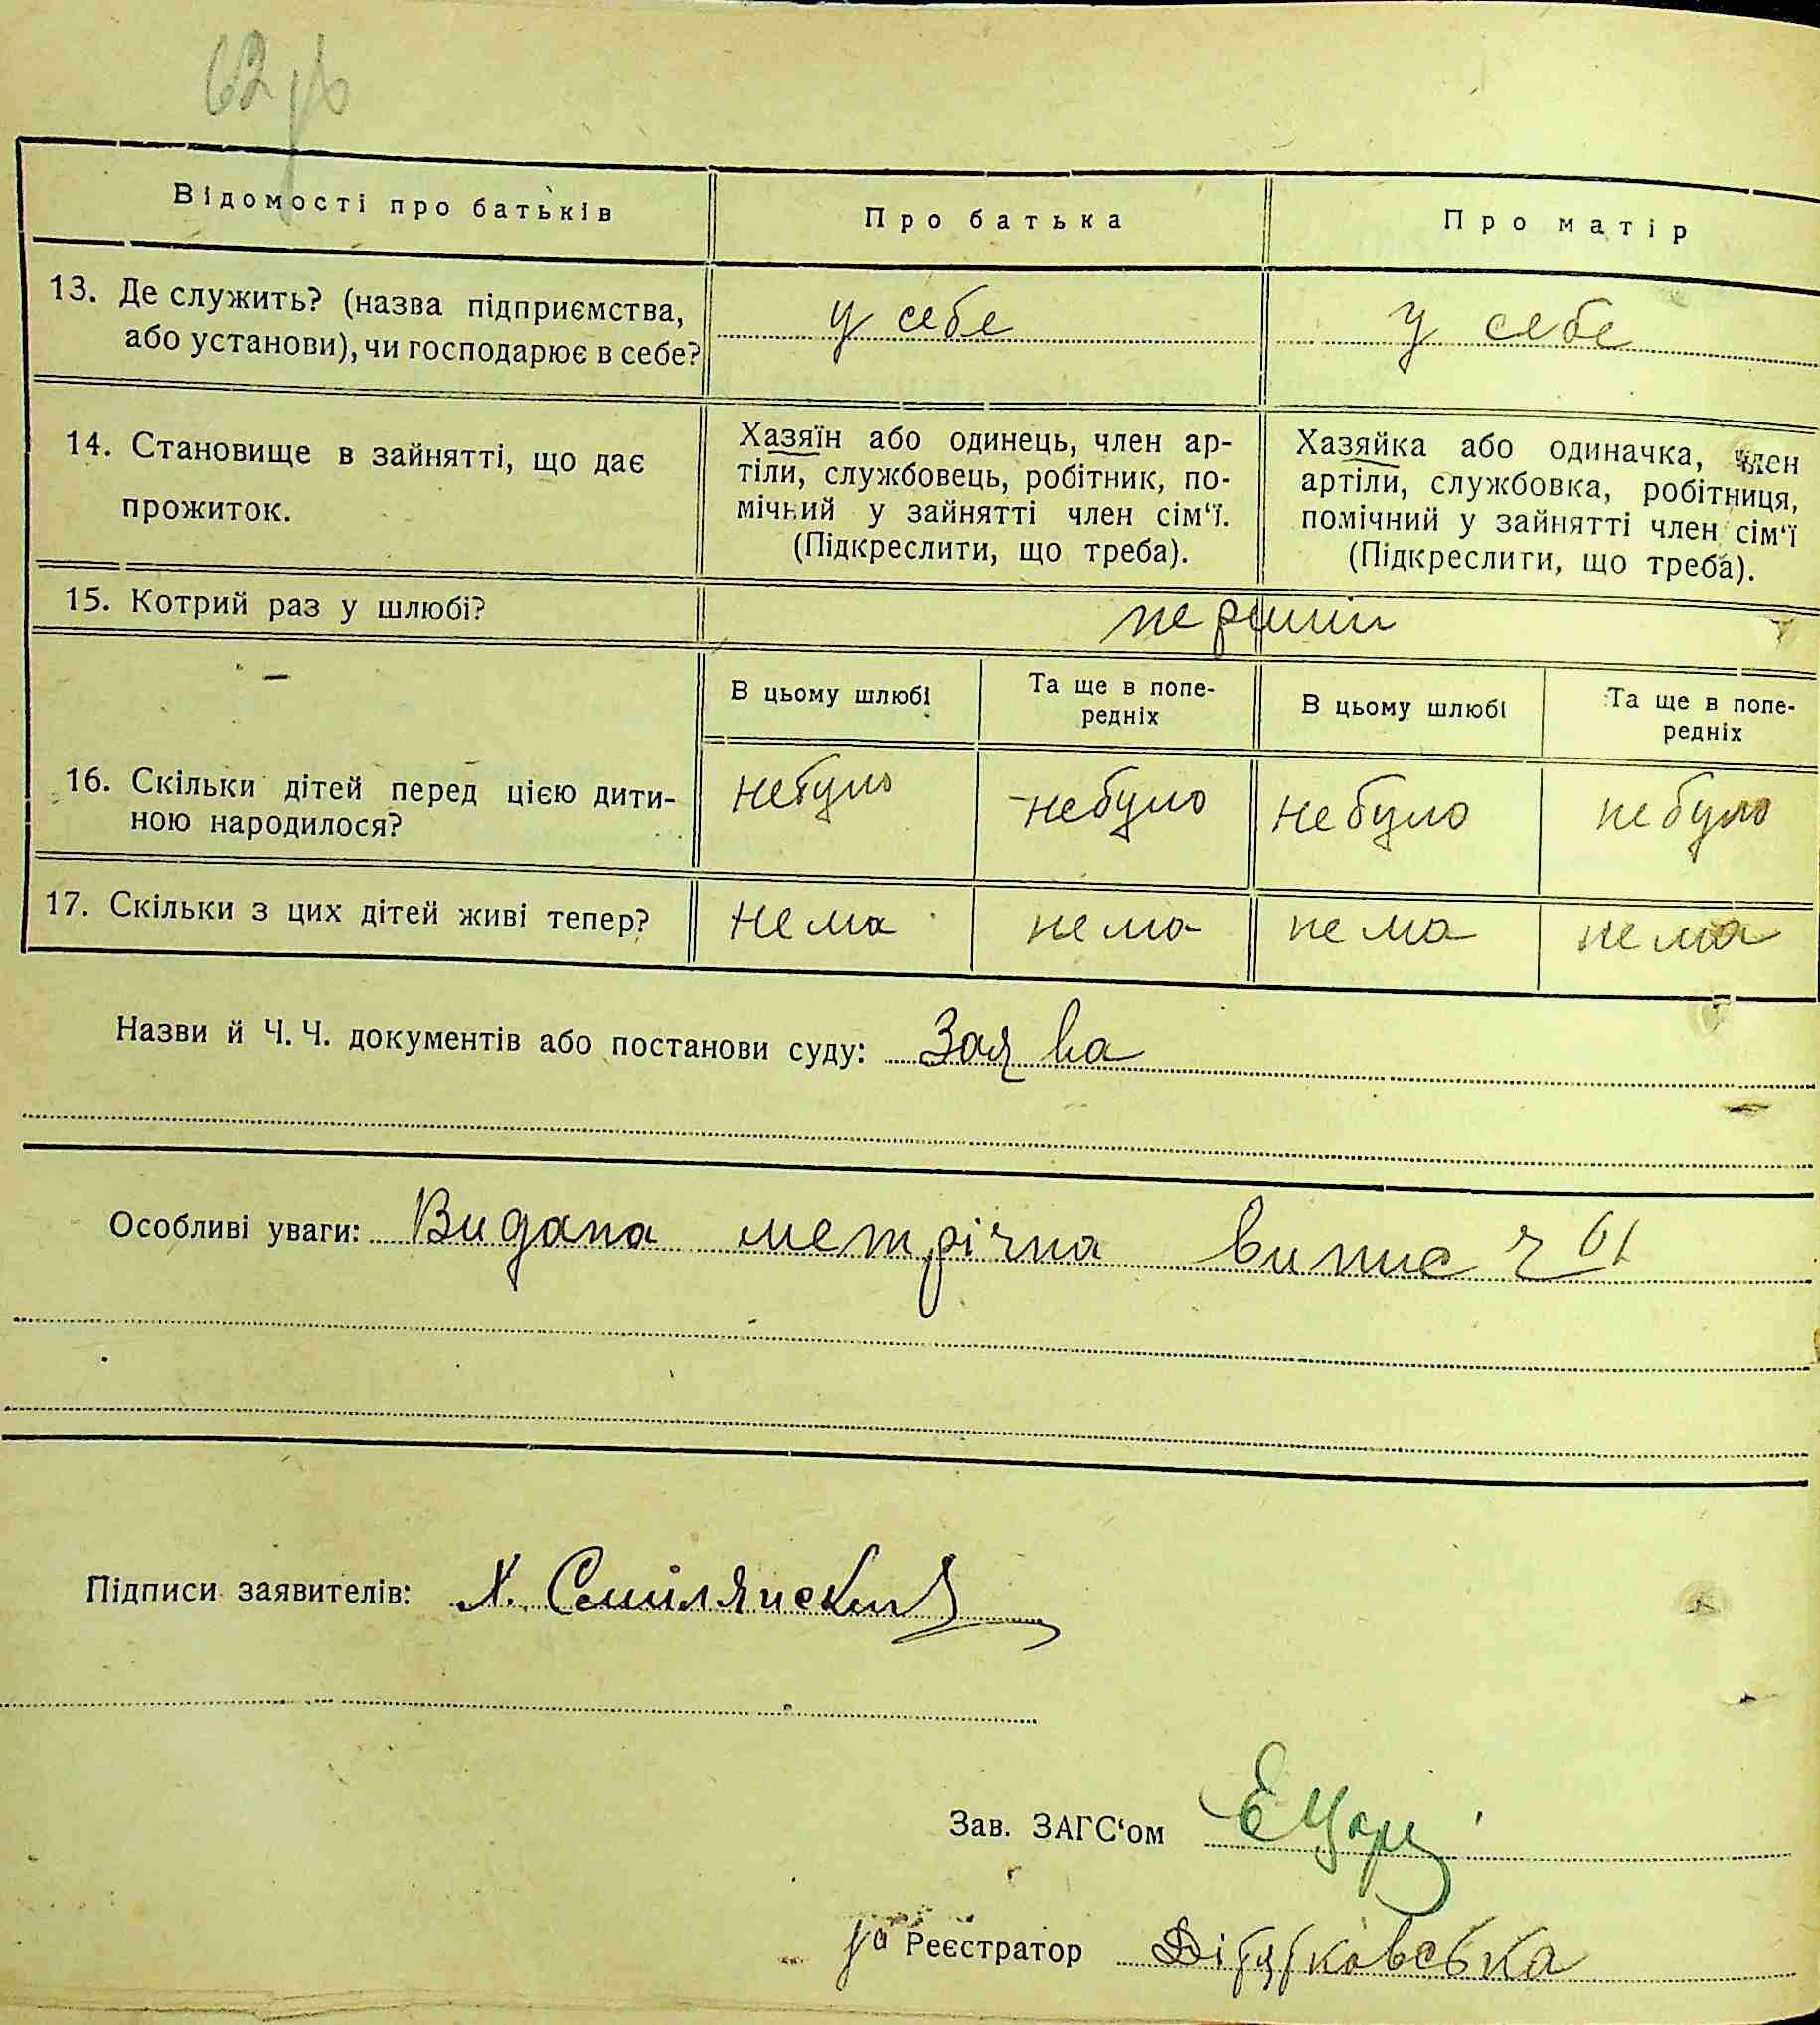 62
Відомості про батьків Про батька Про матір
13. Де служить? (назва підприємства, або установи), чи господарює в себе? у себе у себе
14. Становище в зайнятті, що дає прожиток.
Хазяїн або одинець, член ар-
тіли, службовець, робітник, по-
мічний у зайнятті член сім‘ї.
(Підкреслити, що треба).
Хазяйка або одиначка, член
артіли, службовка, робітниця,
помічний у зайнятті член сім‘ї
(Підкреслити, що треба).
15. Котрий раз у шлюбі? перший
В цьому шлюбі Та ще в попе-
редніх
В цьому шлюбі Та ще в попе-
редніх
16. Скільки дітей перед цією дити-
ною народилося? небуло небуло небуло небуло
17. Скільки з цих дітей живі тепер? нема нема нема нема
Назви й Ч. Ч. документів або постанови суду: Заява
Особливі уваги: Видана метрічна випис ч 61
Підписи заявителів: Х. Смілянский
Зав. ЗАГС‘ом
Реєстратор